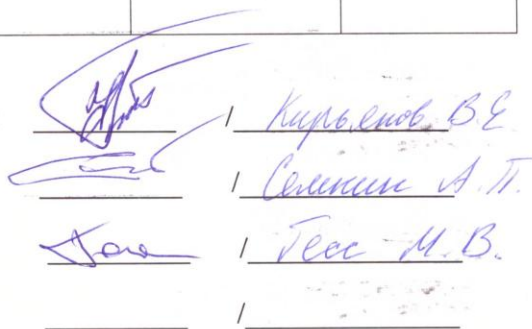 / Кирьянов В.Е
/ Семкин А.П.
/ Гесс М.В.
/